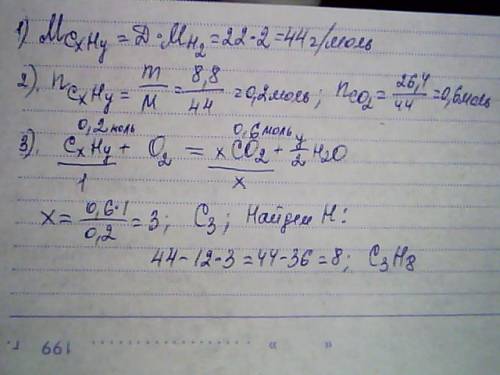 1) M CxHy = D · M H2 = 22 · 2 = 44 г/моль
2). n CxHy = m/M = 8,8/44 = 0,2 моль; n CO2 = 26,4/44 = 0,6 моль
0,2 моль 0,6 моль
3). CxHy + O2 = xCO2 + y/2 H2O
1 x
x = 0,6·1/0,2 = 3; C3; Найдем H:
44 - 12 · 3 = 44 - 36 = 8; C3H8
« » 199 г.